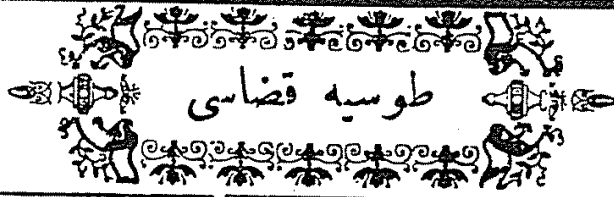 طوسیه قضاسی